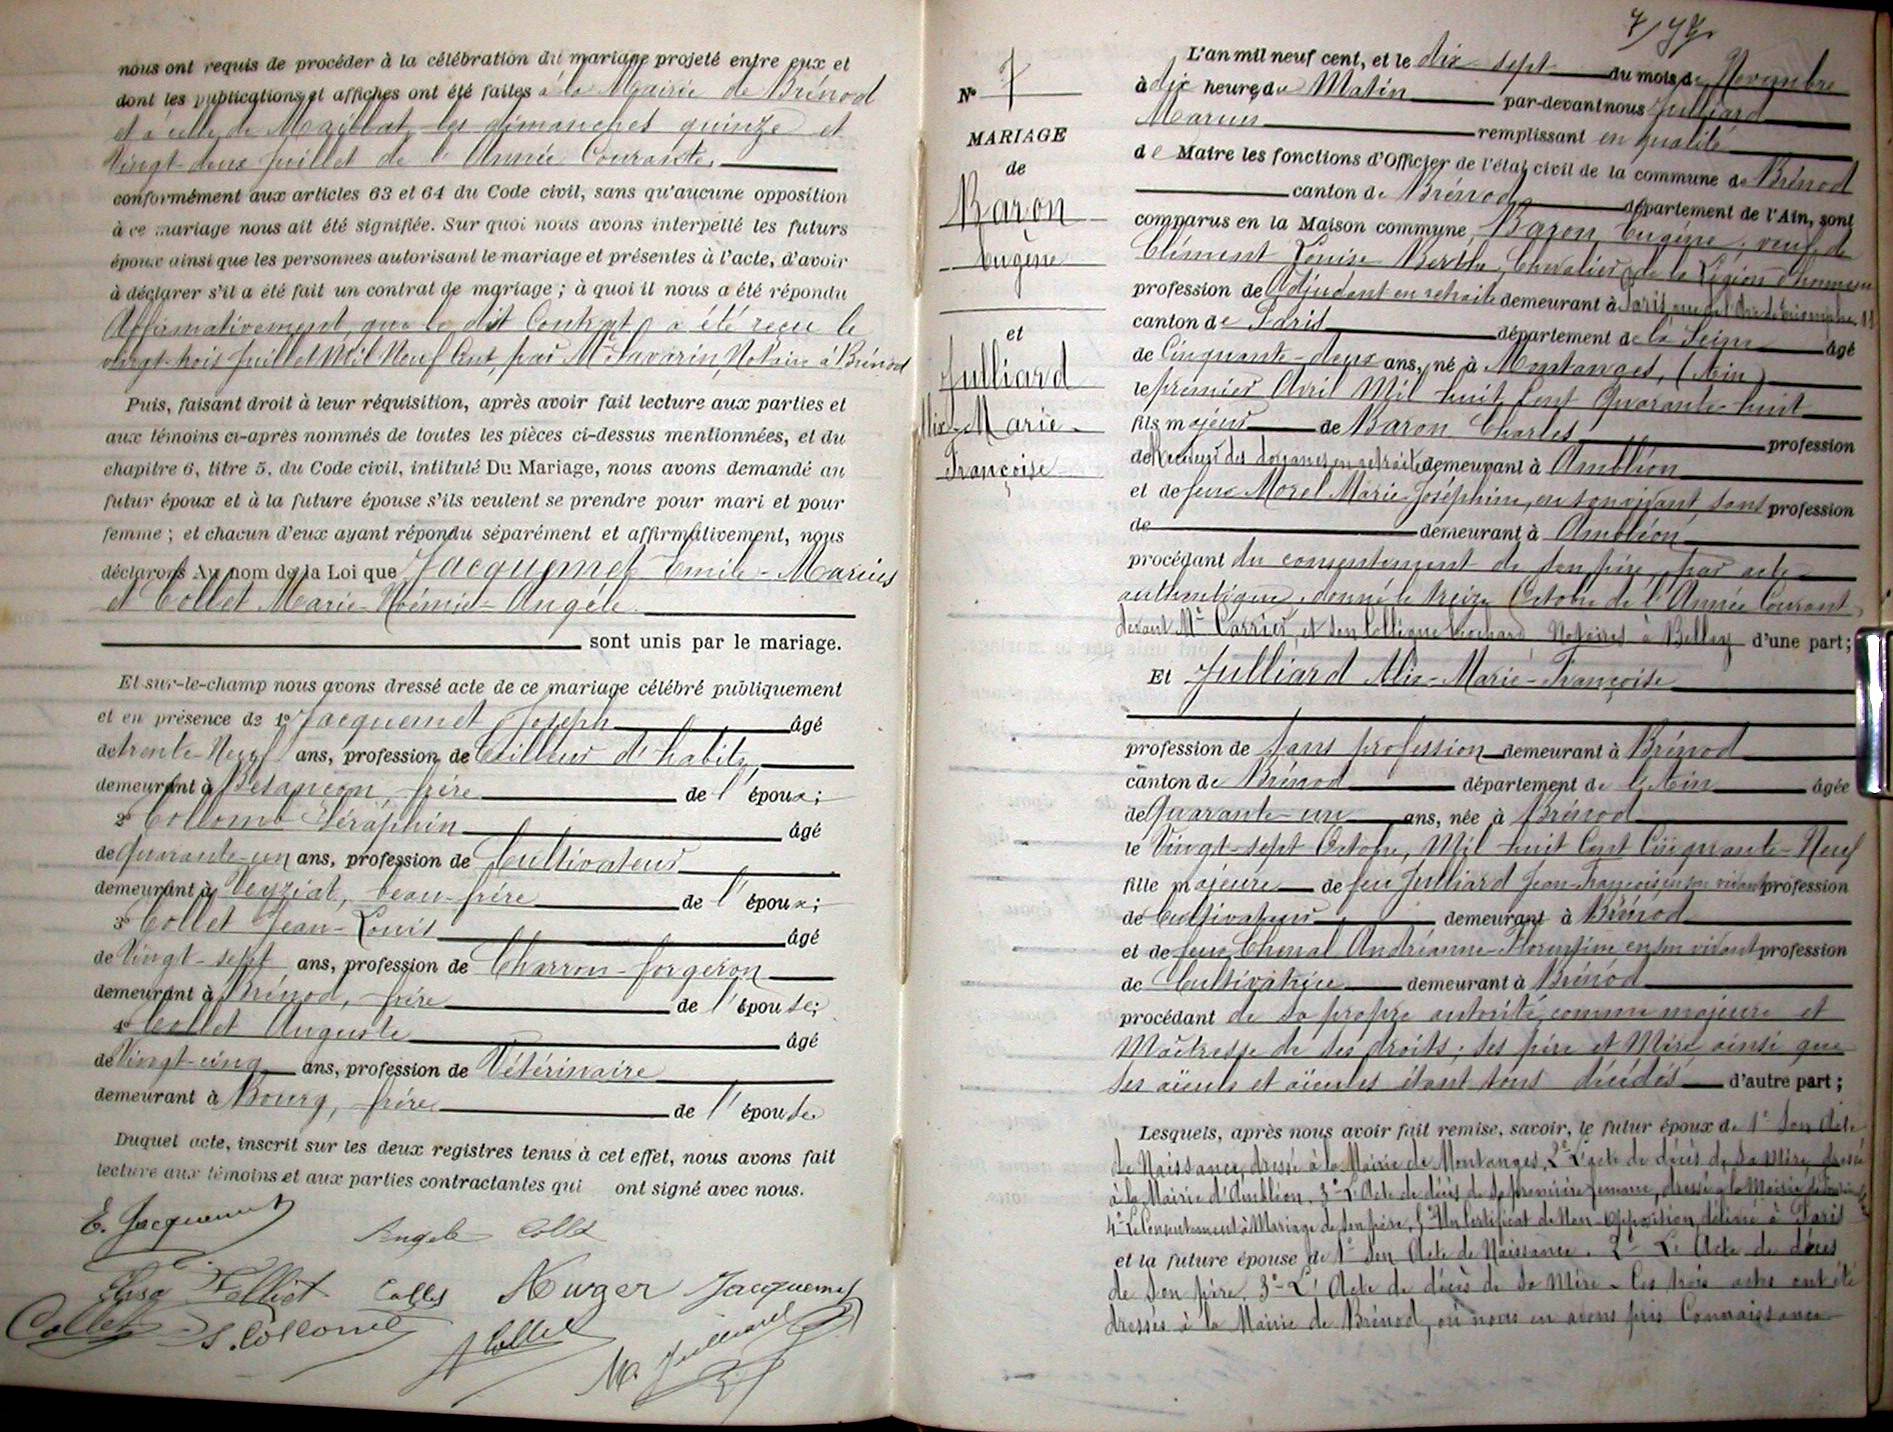 nous ont requis de procéder à la célébration du mariage projeté entre eux et
dont les publications et affiches ont été faites à la Mairie de Brénod
et à celle de Maillat les dimanches quinze et
vingt-deux Juillet de l'Année Courante,
conformément aux articles 63 et 64 du Code civil, sans qu'aucune opposition
à ce mariage nous ait été signifiée. Sur quoi nous avons interpellé les futurs
époux ainsi que les personnes autorisant le mariage et présentes à l'acte, d'avoir
à déclarer s'il a été fait un contrat de mariage ; à quoi il nous a été répondu
Affirmativement, que le dit Contrat a été reçu le
vingt-trois Juillet Mil Neuf Cent, par Me Savarin, Notaire à Brénod
Puis, faisant droit à leur réquisition, après avoir fait lecture aux parties et
aux témoins ci-après nommés de toutes les pièces ci-dessus mentionnées, et du
chapitre 6, titre 5, du Code civil, intitulé Du Mariage, nous avons demandé au
futur époux et à la future épouse s'ils veulent se prendre pour mari et pour
femme ; et chacun d'eux ayant répondu séparément et affirmativement, nous
déclarons Au nom de la Loi que Jacquemet Emile-Marius
et Collet Marie-Noémie-Angèle
sont unis par le mariage.
Et sur-le-champ nous avons dressé acte de ce mariage célébré publiquement
et en présence de 1o Jacquemet Joseph âgé
de trente-Neuf ans, profession de Tailleur d'habits,
demeurant à Besançon, frère de l'époux ;
2o Collomb Séraphin âgé
de Quarante-un ans, profession de Cultivateur
demeurant à Veyziat, beau-frère de l'époux ;
3o Collet Jean-Louis âgé
de Vingt-sept ans, profession de Charron-forgeron
demeurant à Brénod, frère de l'épouse ;
4o Collet Auguste âgé
de Vingt-cinq ans, profession de Vétérinaire
demeurant à Bourg, frère de l'épouse
Duquel acte, inscrit sur les deux registres tenus à cet effet, nous avons fait
lecture aux témoins et aux parties contractantes qui ont signé avec nous.
E. Jacquemet
Angèle Collet
Collet Jacquemet
Collet S. Collomb
A Collet
M. Julliard
No 7
MARIAGE
de
Baron
Eugène
et
Julliard
Alix-Marie-
Françoise
L'an mil neuf cent, et le dix-sept du mois de Novembre
à dix heures du Matin par-devant nous Julliard
Marius remplissant en qualité
de Maire les fonctions d'Officier de l'état civil de la commune de Brénod
canton de Brénod, département de l'Ain, sont
comparus en la Maison commune, Baron Eugène, veuf de
Clément Louise Berthe, Chevalier de la Légion d'honneur
profession de Adjudant en retraite demeurant à Paris rue de l'Arc de Triomphe
canton de Paris département de la Seine âgé
de Cinquante-deux ans, né à Montanges, (Ain)
le premier Avril Mil huit Cent Quarante-huit
fils majeur de Baron Charles profession
de Receveur des douanes en retraite demeurant à Ambléon
et de feue Morel Marie-Joséphine, en son vivant sans profession
de demeurant à Ambléon
procédant du consentement de son père, par acte
authentique, donné le treize Octobre de l'Année Courante
devant Me Carrier, et son Collègue Notaires à Belley d'une part ;
Et Julliard Alix-Marie-Françoise
profession de Sans profession demeurant à Brénod
canton de Brénod département de l'Ain âgée
de Quarante-un ans, née à Brénod
le Vingt-sept Octobre, Mil huit Cent Cinquante-Neuf
fille majeure de feu Julliard Jean-François en son vivant profession
de Cultivateur demeurant à Brénod
et de feue Chenal Andréanne-Florentine en son vivant profession
de Cultivatrice demeurant à Brénod
procédant de sa propre autorité, comme majeure et
Maîtresse de ses droits ; ses père et Mère ainsi que
ses aïeuls et aïeules étant tous décédés d'autre part ;
Lesquels, après nous avoir fait remise, savoir, le futur époux de 1o Son Acte
de Naissance, dressé à la Mairie de Montanges, 2o L'acte de décès de sa Mère dressé
à la Mairie d'Ambléon, 3o L'Acte de décès de sa première femme, dressé à la Mairie de
4o Le Consentement à Mariage de son père, 5o Un Certificat de Non-opposition, délivré à Paris
et la future épouse de 1o Son Acte de Naissance. 2o L'Acte de décès
de Son père, 3o L'Acte de décès de sa Mère - Ces trois actes ont été
dressés à la Mairie de Brénod, où nous en avons pris Connaissance